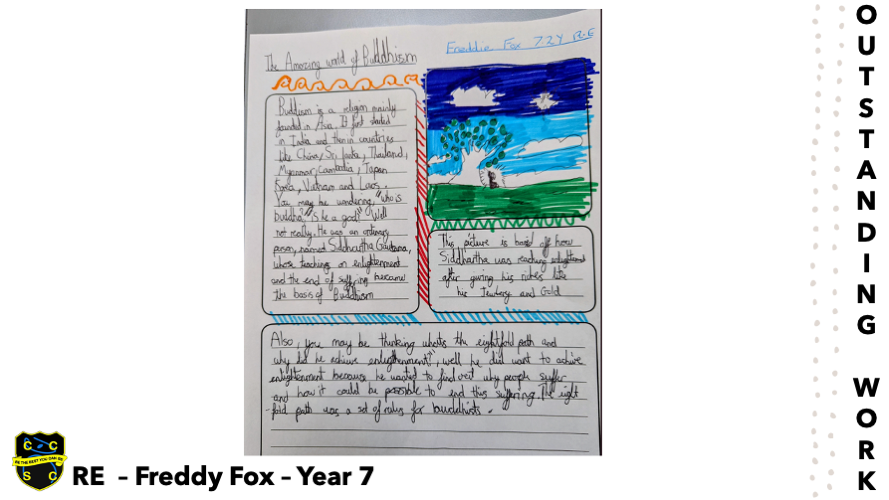 The Amazing world of Buddhism
Freddie Fox 7.2Y R.E
Buddism is a religion mainly
founded in Asia. It first started
in India and then in countries
like China, Sri Lanka, Thailand,
Myanmar, Cambodia, Japan
Korea, Vietnam and Laos.
You may be wondering, "who is
buddha?" "is he a god?" Well
not really. He was an ordinary
person, named Siddhartha Gautama,
whose teachings on enlightenment
and the end of suffering became
the basis of Buddhism
This picture is based off how
Siddhartha was reaching
after giving his riches like
his Jewlery and Gold
Also, you may be thinking whats the eightfold path and
why did he achieve enlightenment?", well he did want to achive
enlightenment because he wanted to find out why people suffer
and how it could be possible to end this suffering. The eight
-fold path was a set of rules for buddhists.
C C
BE THE BEST YOU CAN BE
S C
RE - Freddy Fox - Year 7
OUTSTANDING
WORK